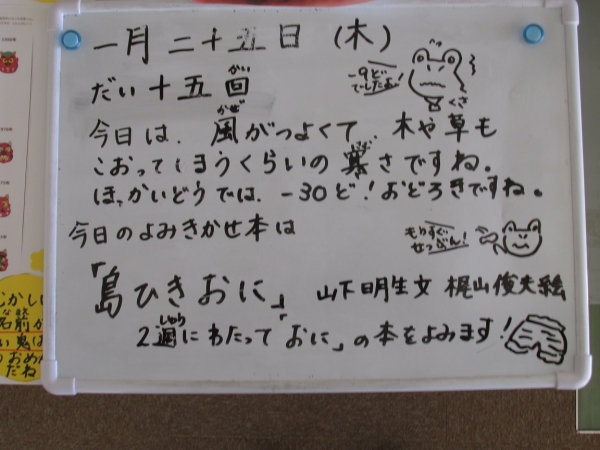 一月二十五日(木)
だい十五回
かい
-9ど
でしたよ!
くさ
かぜ
今日は、風がつよくて、木や草も
こおってしまうくらいの寒さですね。
ほっかいどうでは、-30ど!おどろきですね。
今日のよみきかせ本は
もうすぐ
せつぶん!
「島ひきおに」 山下明生文 梶山俊夫絵
しゅう
2週にわたって「おに」の本をよみます!
むかしい
なまえ
名前が
い鬼は
のおめん
だね